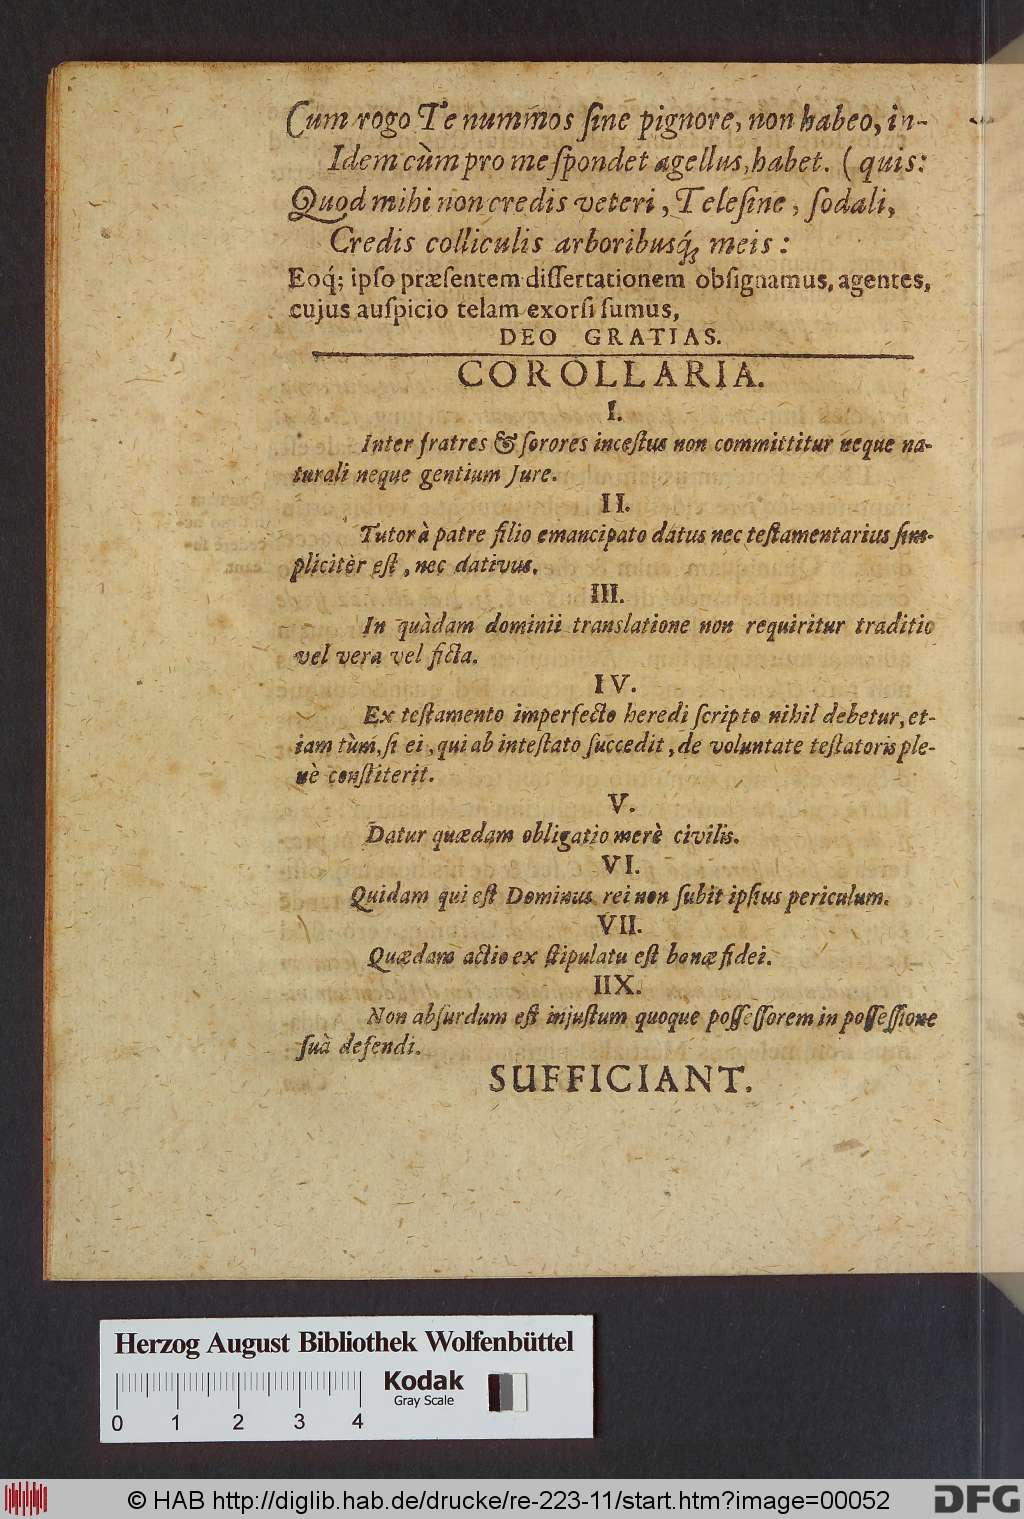 Cum rogo Te nummos ſine pignore, non habeo, in-
Idem cùm pro me ſpondet agellus, habet. ( quis:
Quod mihi non credis veteri, Teleſine, ſodali,
Credis colliculis arboribusq́; meis:
Eoq́; ipſo præſentem diſſertationem obſignamus, agentes,
cujus auſpicio telam exorſi ſumus,
DEO GRATIAS.
COROLLARIA.
I.
Inter fratres & ſorores inceſtus non committitur neque na-
turali neque gentium Jure.
II.
Tutor à patre filio emancipato datus nec teſtamentarius ſim-
plicitèr eſt, nec dativus.
III.
In quàdam dominii translatione non requiritur traditio
vel vera vel ficta.
IV.
Ex teſtamento imperfecto heredi ſcripto nihil debetur, et-
iam tùm, ſi ei, qui ab inteſtato ſuccedit, de voluntate teſtatoris ple-
nè conſtiterit.
V.
Datur quædam obligatio merè civilis.
VI.
Quidam qui eſt Dominus rei non ſubit ipſius periculum.
VII.
Quædam actio ex ſtipulatu eſt bonæ fidei.
IIX.
Non abſurdum eſt injuſtum quoque poſſeſſorem in poſſeſſione
ſuâ defendi.
SUFFICIANT.
Herzog August Bibliothek Wolfenbüttel
Kodak
Gray Scale
0 1 2 3 4
© HAB http://diglib.hab.de/drucke/re-223-11/start.htm?image=00052
DFG